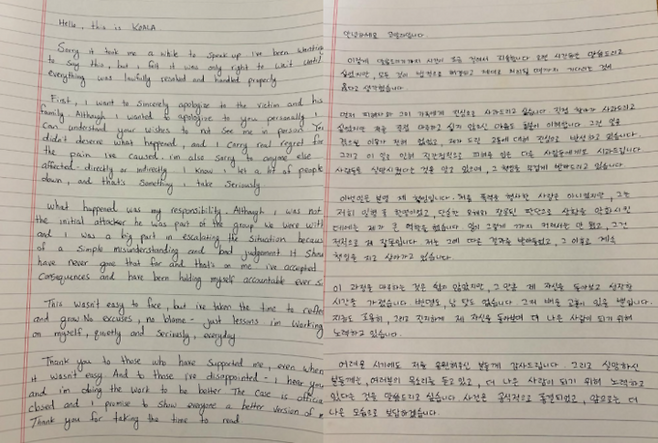 Hello, this is KOALA
Sorry it took me a while to speak up I've been wanting
to say this, but i felt it was only right to wait until
everything was lawfully resolved and handled properly
First, I want to sincerely apologize to the victim and his
family. Although I wanted to apologize to you personally I
can understand your wishes to not see me in person. You
didn't deserve what happened, and i carry real regret for
the pain I've caused. i'm also sorry to anyone else
affected - directly or indirectly. I know i let a lot of people
down, and that's something i take seriously
What happened was my responsibility. Although i was not
the initial attacker he was part of the group we were with
and i was a big part in escalating the situation because
of a simple misunderstanding and bad judgement. It Should
have never gone that far and that's on me. i've accepted
consequences and have been holding myself accountable ever s
This wasn't easy to face, but i've taken the time to reflec
and grow. No excuses, no blame - just lessons. i'm working
on myself, quietly and seriously, everyday
Thank you to those who have supported me, even when
it wasn't easy. And to those i've disappointed - i hear you
and i'm doing the work to be better. The Case is official
closed and i promise to show everyone a better version of
Thank you for taking the time to read
안녕하세요 코알라입니다.
이렇게 말씀드리기까지 시간이 조금 걸려서 죄송합니다. 오랜 시간동안 말씀드리고
싶었지만, 모든 것이 법적으로 해결되고 제대로 처리될 때까지 기다리는 것이
옳다고 생각했습니다.
먼저 피해자와 그의 가족에게 진심으로 사과드리고 싶습니다. 직접 찾아가 사과드리고
싶었지만 저를 직접 마주하고 싶지 않으신 마음도 충분히 이해합니다. 그런 일을
겪으실 이유가 전혀 없었고, 제가 드린 고통에 대해 진심으로 반성하고 있습니다.
그리고 이 일로 인해 직간접적으로 피해를 입은 다른 사람들에게도 사과드립니다.
사람들을 실망시켰다는 것을 알고 있으며, 그 책임을 무겁게 받아들이고 있습니다.
이번 일은 분명 제 책임입니다. 처음 폭력을 행사한 사람은 아니었지만, 그는
저희 일행 중 한명이었고, 단순한 오해와 잘못된 판단으로 상황을 악화시킨
데에는 제가 큰 역할을 했습니다. 일이 그렇게 까지 커져서는 안 됐고, 그건
전적으로 제 잘못입니다. 저는 그에 따른 결과를 받아들였고, 그 이후로 계속
책임을 지고 살아가고 있습니다.
이 과정을 마주하는 것은 쉽지 않았지만, 그 만큼 제 자신을 돌아보고 성장할
시간을 가졌습니다. 변명도, 남 탓도 없습니다. 그저 배운 교훈이 있을 뿐입니다.
지금도 조용히, 그리고 진지하게 제 자신을 돌아보며 더 나은 사람이 되기 위해
노력하고 있습니다.
어려운 시기에도 저를 응원해주신 분들께 감사드립니다. 그리고 실망하신
분들께는, 여러분의 목소리를 듣고 있고, 더 나은 사람이 되기 위해 노력하고
있다는 것을 말씀드리고 싶습니다. 사건은 공식적으로 종결되었고, 앞으로는 더
나은 모습으로 보답하겠습니다.